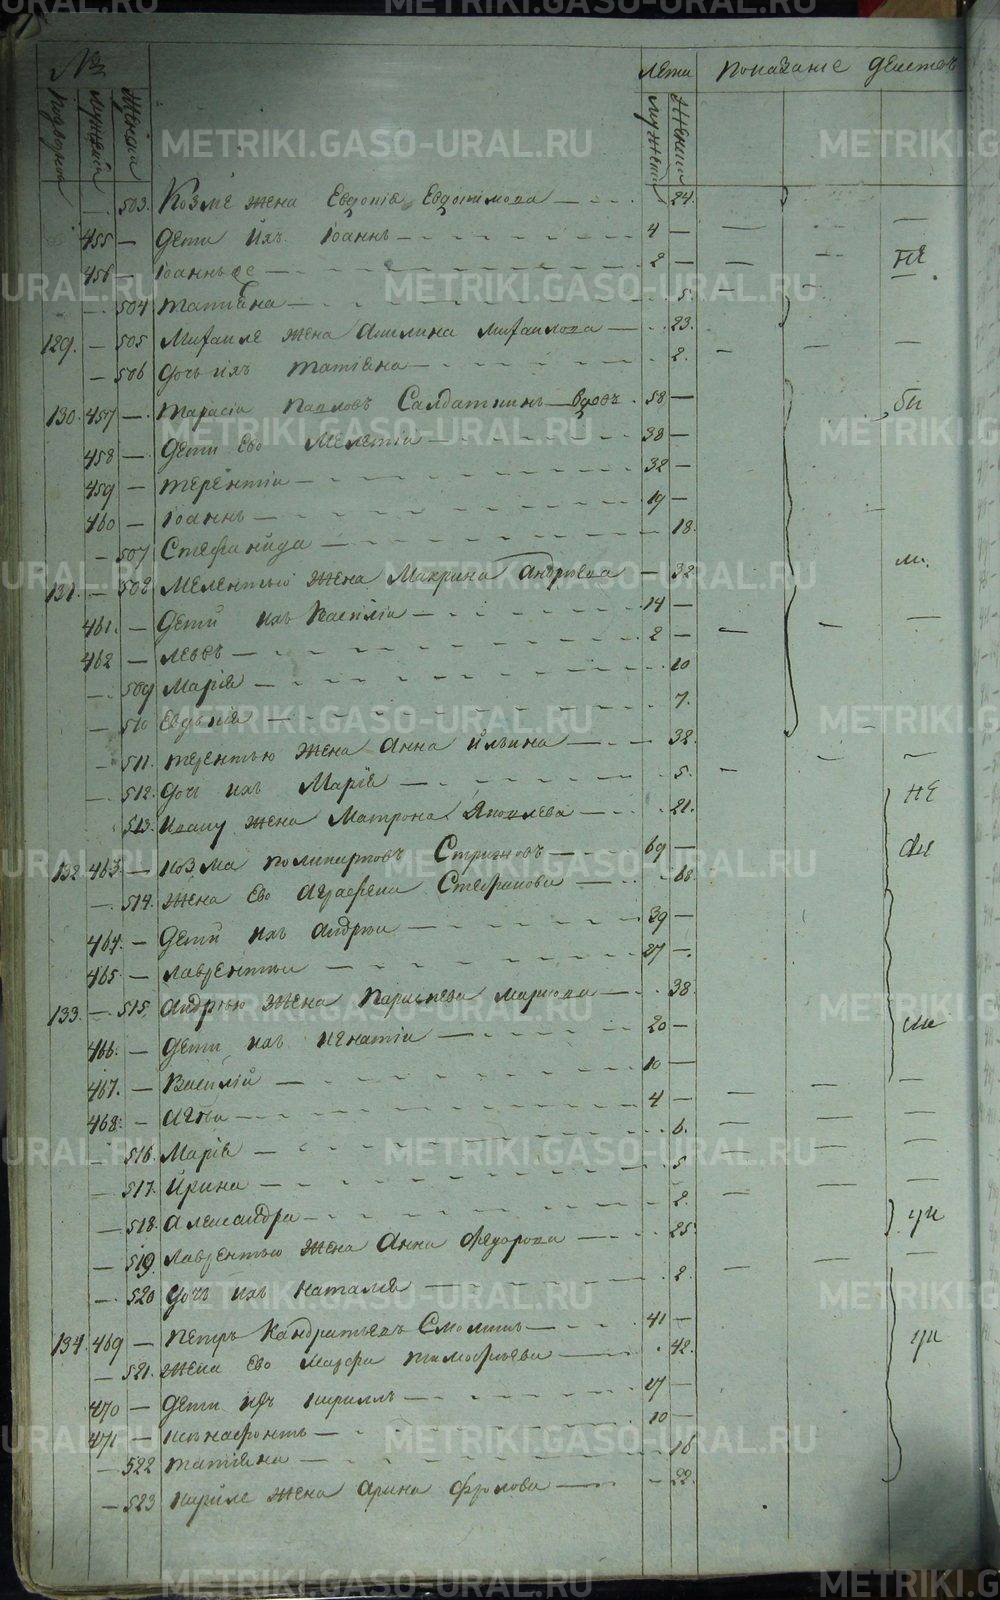 №
лета показание действ
подворна мужеска женска мужеска женска
503. Козме жена Евдокiѣ Евдокимова 24
455 дети ихъ Iоаннъ 4
456 Iоаннъ 2 не
504 татiѣна 5
129. 505 Михаиле жена Акилина михаилова 23
506 дочь ихъ татiѣна 2.
130. 457 тарасiи павловъ Салдаткинъ вдовъ 58 бы
458 дети Ево Мелетiи 38
459 терентiи 32
460 Iоаннъ 19
507 Стефанида 18
131. 508 Мелентью жена Макрина Андреева 32
461. дети ихъ Василiи 14
462 левъ 2
509 Марiѣ 10
510 Евдѣкiѣ 7.
511. терентью жена Анна ильина 32
512. дочь ихъ Марiѣ 5.
513. Ивану жена Матрона Яковлева 21. не
132. 463. козма поликарповъ Стрижовъ 69
514. жена Ево Аграфена Стефанова 68
464. дети ихъ андреи 39
465. лаврентiи 27
133. 515. андрею жена маркова 38.
466. дети ихъ игнатiи 20
467. Василiй 10
468. 4
516. Марiѣ 6.
517. Ирина 5
518. александра 2.
519. лаврентью жена Анна Федорова 25
520 дочь ихъ наталiѣ 2.
134. 469 петръ Кандратьевъ Смолинъ 41
521. жена Ево Марфа тимофѣева 42.
470 дети ихъ кириллъ 17
471 ксенафонтъ 10
522 татiѣна 16
523 кириле жена арина фролова 22.
METRIKI.GASO-URAL.RU